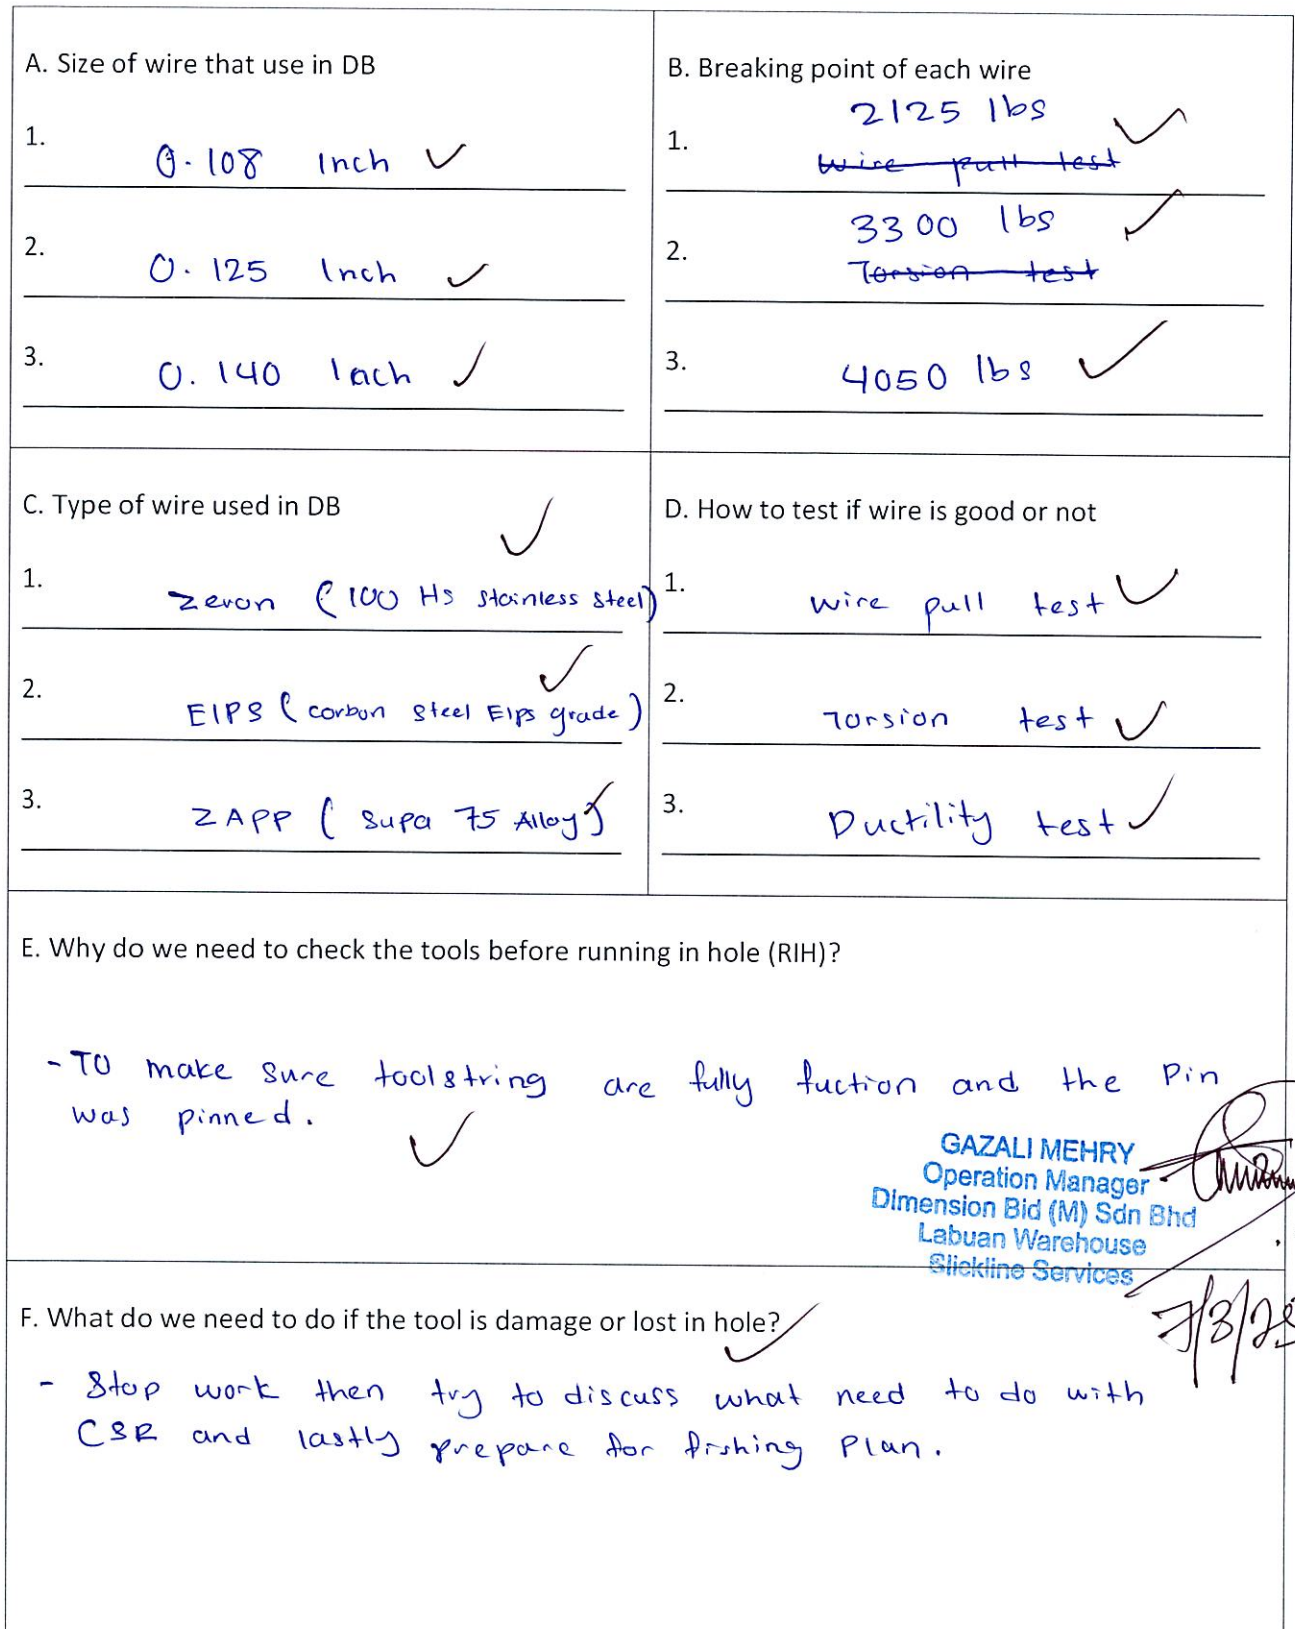 A. Size of wire that use in DB
1. 0.108 Inch
2. 0.125 Inch
3. 0.140 Inch
B. Breaking point of each wire
2125 lbs
1. wire pull test
3300 lbs
2. Torsion test
3. 4050 lbs
C. Type of wire used in DB
1. Zeron (100 HS stainless steel)
2. EIPS (carbon steel EIPS grade)
3. ZAPP (Supa 75 Alloy)
D. How to test if wire is good or not
1. wire pull test
2. Torsion test
3. Ductility test
E. Why do we need to check the tools before running in hole (RIH)?
- TO make sure toolstring are fully fuction and the Pin
was pinned.
GAZALI MEHRY
Operation Manager
Dimension Bid (M) Sdn Bhd
Labuan Warehouse
Slickline Services
7/3/25
F. What do we need to do if the tool is damage or lost in hole?
- Stop work then try to discuss what need to do with
CSR and lastly prepare for fishing Plan.